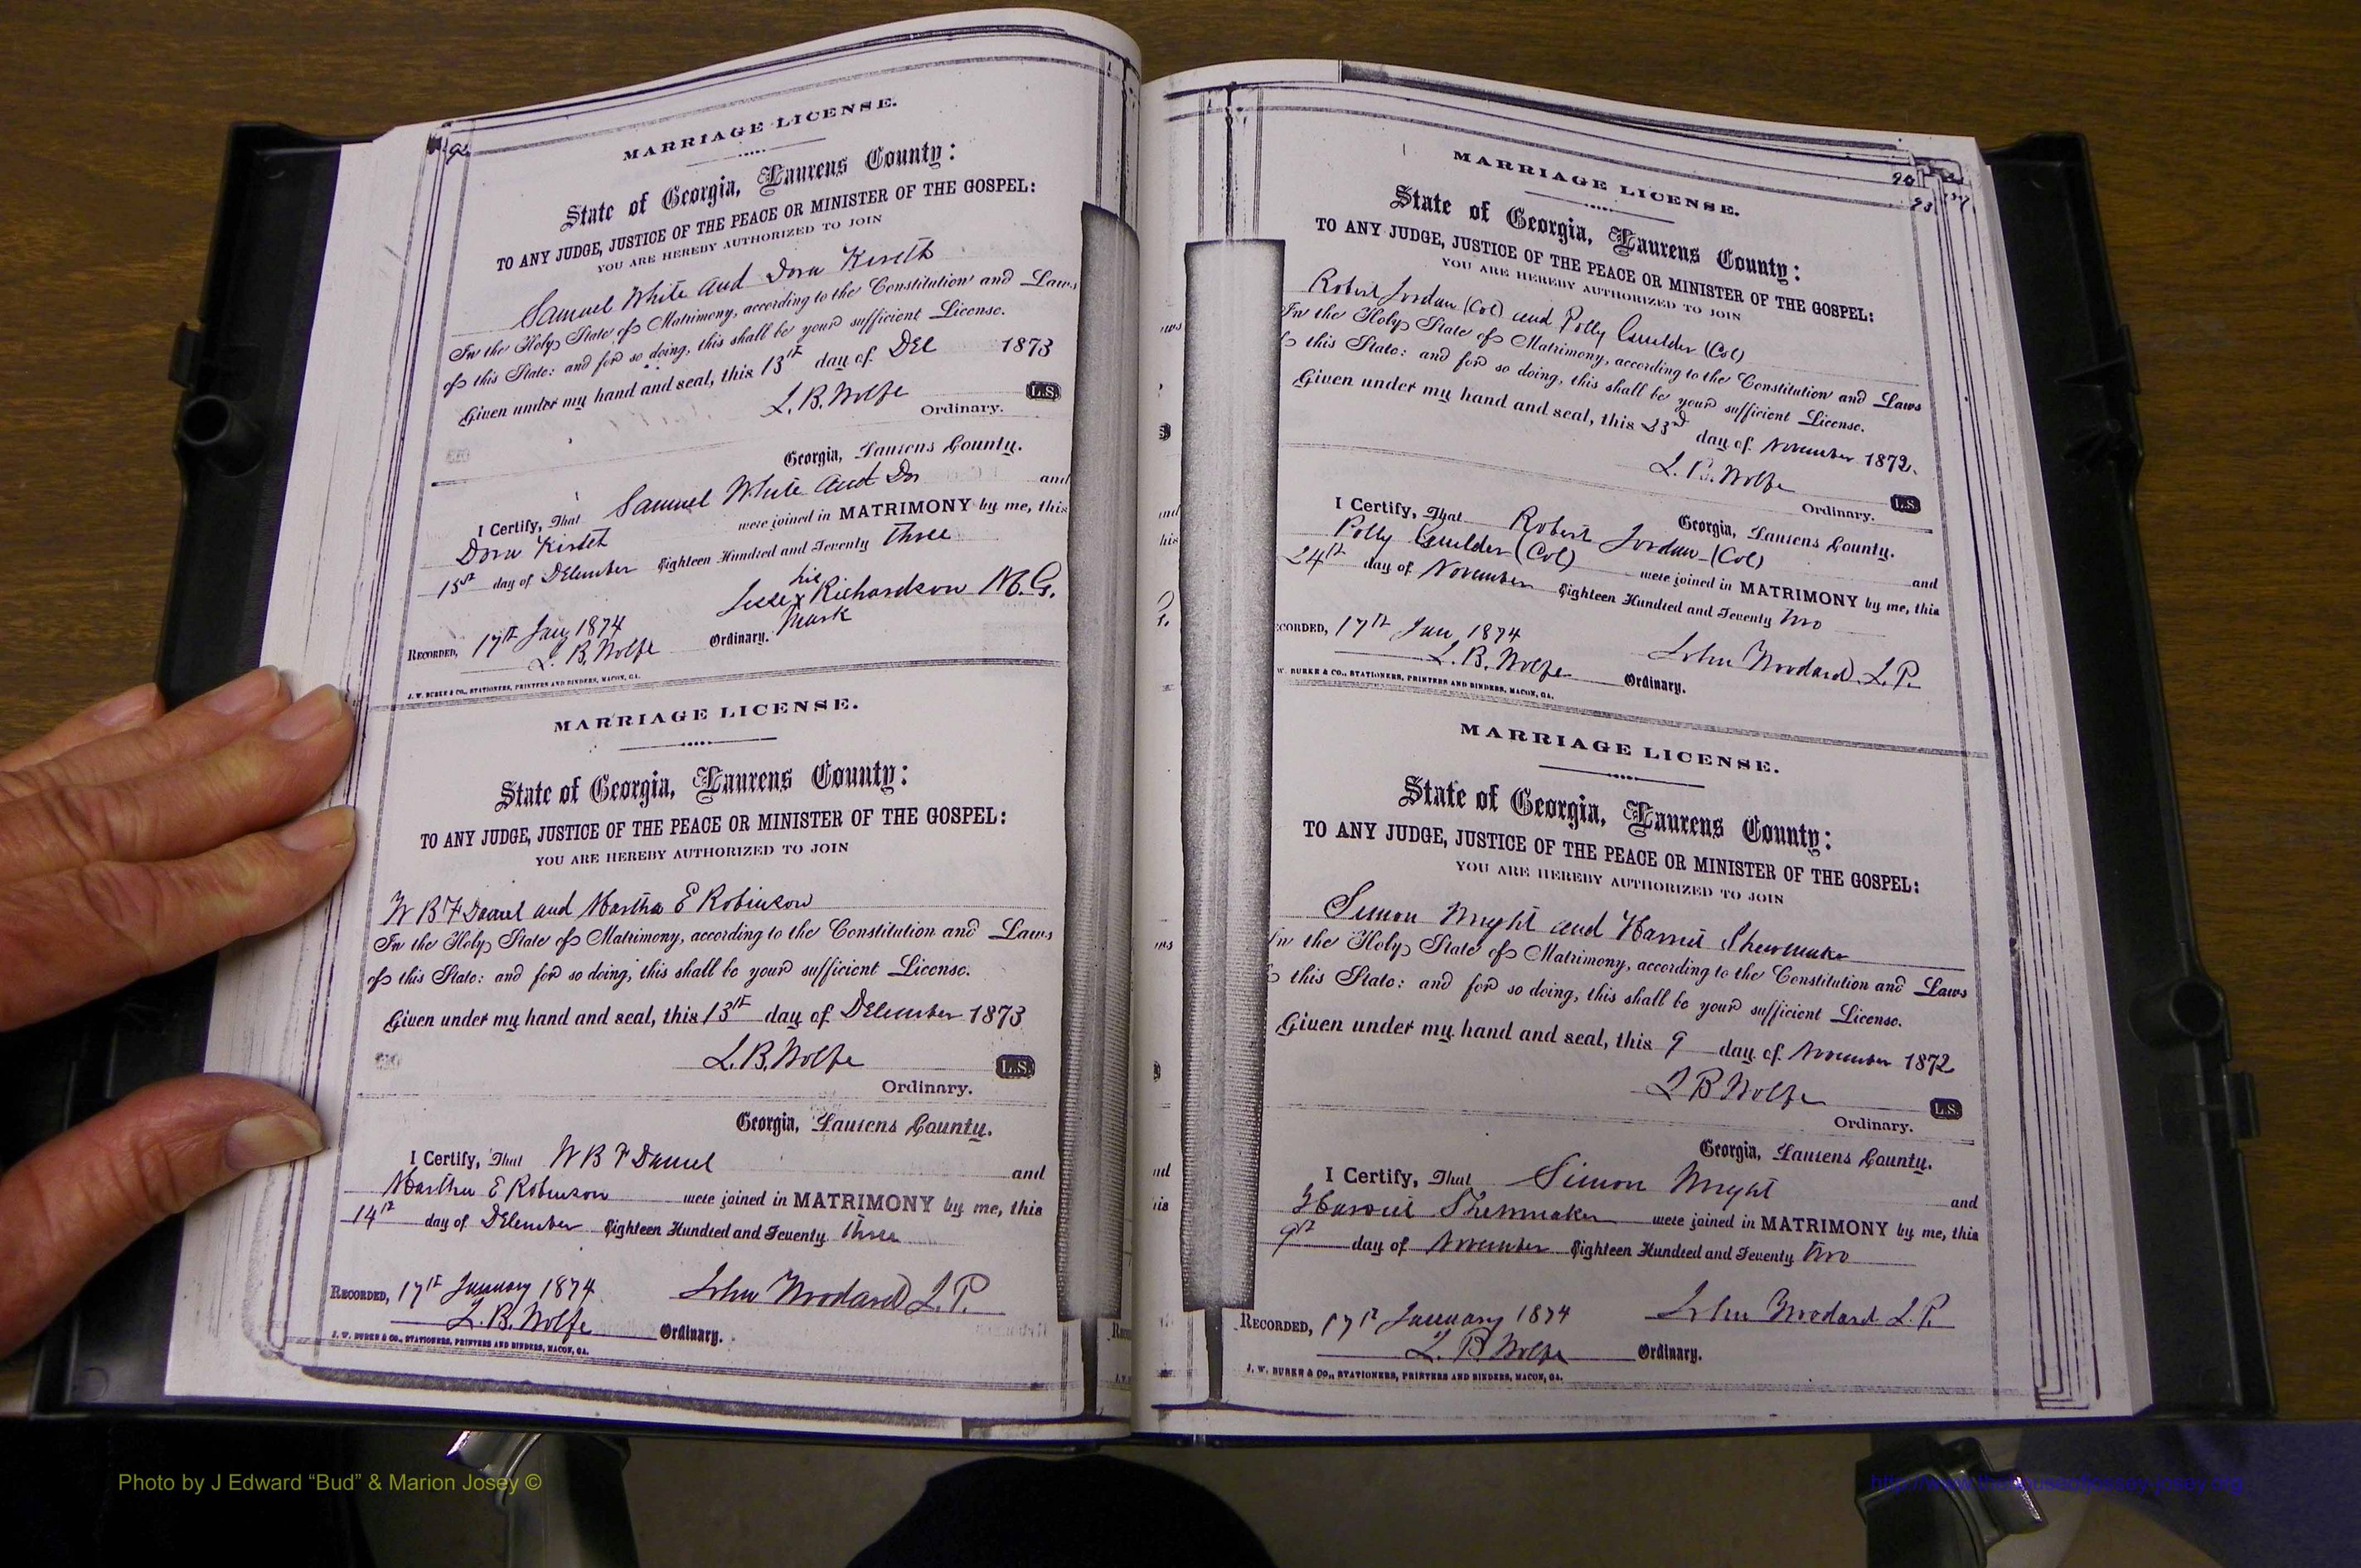 92
MARRIAGE LICENSE.
State of Georgia, Laurens County:
TO ANY JUDGE, JUSTICE OF THE PEACE OR MINISTER OF THE GOSPEL:
YOU ARE HEREBY AUTHORIZED TO JOIN
Samuel White and Dora
In the Holy State of Matrimony, according to the Constitution and Laws
of this State: and for so doing, this shall be your sufficient License.
Given under my hand and seal, this 13th day of Dec 1873
L. B. Wolfe L.S.
Ordinary.
Georgia, Laurens County.
I Certify, That Samuel White and Do and
Dora were joined in MATRIMONY by me, this
15th day of December Eighteen Hundred and Seventy Three
his
Jesse x Richardson M.G.
mark
Recorded, 17th Jan 1874
L. B. Wolfe Ordinary.
J. W. BURKE & CO., STATIONERS, PRINTERS AND BINDERS, MACON, GA.
MARRIAGE LICENSE.
State of Georgia, Laurens County:
TO ANY JUDGE, JUSTICE OF THE PEACE OR MINISTER OF THE GOSPEL:
YOU ARE HEREBY AUTHORIZED TO JOIN
W B F Daniel and Martha E Robinson
In the Holy State of Matrimony, according to the Constitution and Laws
of this State: and for so doing, this shall be your sufficient License.
Given under my hand and seal, this 13th day of December 1873
L. B. Wolfe L.S.
Ordinary.
Georgia, Laurens County.
I Certify, That W B F Daniel and
Martha E Robinson were joined in MATRIMONY by me, this
14th day of December Eighteen Hundred and Seventy Three
Recorded, 17th January 1874 John Woodard J. P.
L. B. Wolfe Ordinary.
J. W. BURKE & CO., STATIONERS, PRINTERS AND BINDERS, MACON, GA.
93
MARRIAGE LICENSE.
State of Georgia, Laurens County:
TO ANY JUDGE, JUSTICE OF THE PEACE OR MINISTER OF THE GOSPEL:
YOU ARE HEREBY AUTHORIZED TO JOIN
Robert Jordan (Col) and Polly (Col)
In the Holy State of Matrimony, according to the Constitution and Laws
this State: and for so doing, this shall be your sufficient License.
Given under my hand and seal, this 23rd day of November 1872.
L. B. Wolfe L.S.
Ordinary.
Georgia, Laurens County.
I Certify, That Robert Jordan (Col) and
Polly (Col) were joined in MATRIMONY by me, this
24th day of November Eighteen Hundred and Seventy Two
ECORDED, 17th Jan, 1874 John Woodard J. P.
L. B. Wolfe Ordinary.
W. BURKE & CO., STATIONERS, PRINTERS AND BINDERS, MACON, GA.
MARRIAGE LICENSE.
State of Georgia, Laurens County:
TO ANY JUDGE, JUSTICE OF THE PEACE OR MINISTER OF THE GOSPEL:
YOU ARE HEREBY AUTHORIZED TO JOIN
Simon Wright and Harriet Shewmaker
In the Holy State of Matrimony, according to the Constitution and Laws
this State: and for so doing, this shall be your sufficient License.
Given under my hand and seal, this 9 day of November 1872
L B Wolfe L.S.
Ordinary.
Georgia, Laurens County.
I Certify, That Simon Wright and
Harriet Shewmaker were joined in MATRIMONY by me, this
9th day of November Eighteen Hundred and Seventy Two
Recorded, 17th January 1874 John Woodard J. P.
L. B Wolfe Ordinary.
J. W. BURKE & CO., STATIONERS, PRINTERS AND BINDERS, MACON, GA.
Photo by J Edward “Bud” & Marion Josey ©